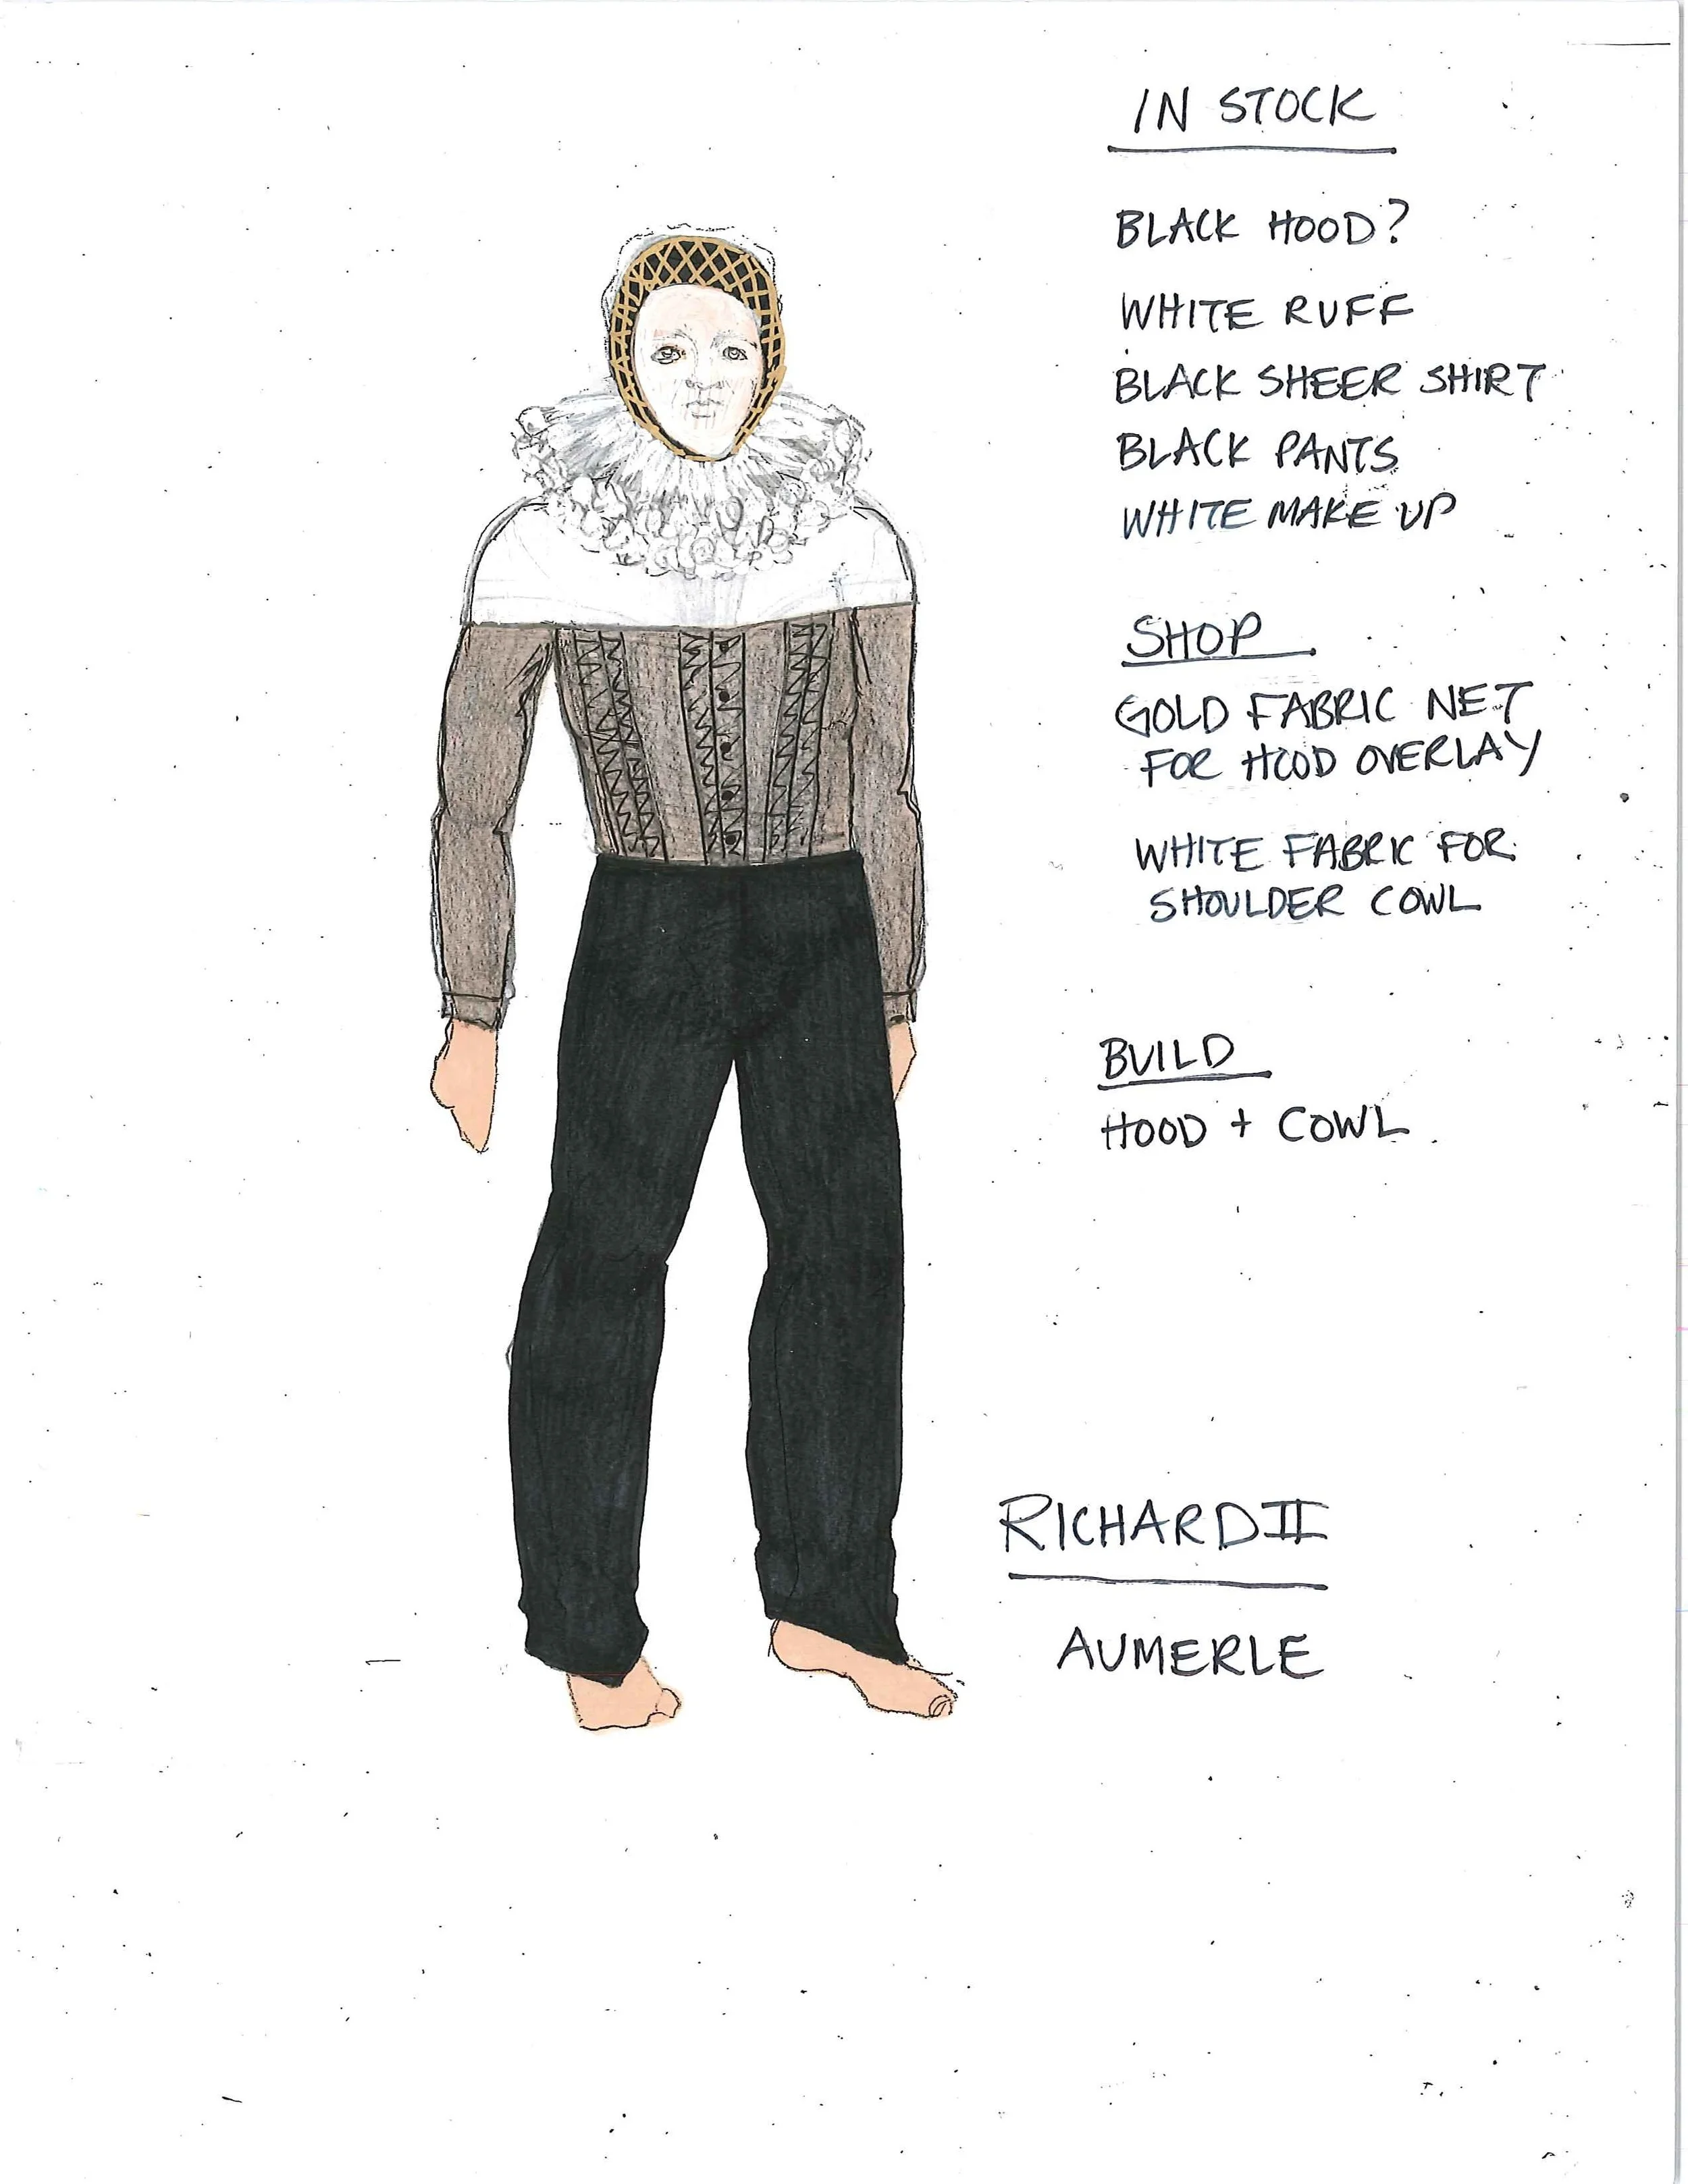 IN STOCK
BLACK HOOD?
WHITE RUFF
BLACK SHEER SHIRT
BLACK PANTS
WHITE MAKE UP
SHOP
GOLD FABRIC NET
FOR HOOD OVERLAY
WHITE FABRIC FOR
SHOULDER COWL
BUILD
HOOD + COWL
RICHARD II
AUMERLE